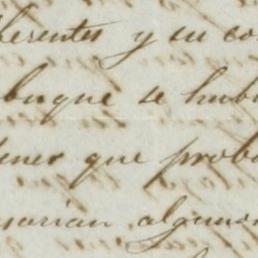 herentes y su co
buque se hub
ner que prob
narian algunos